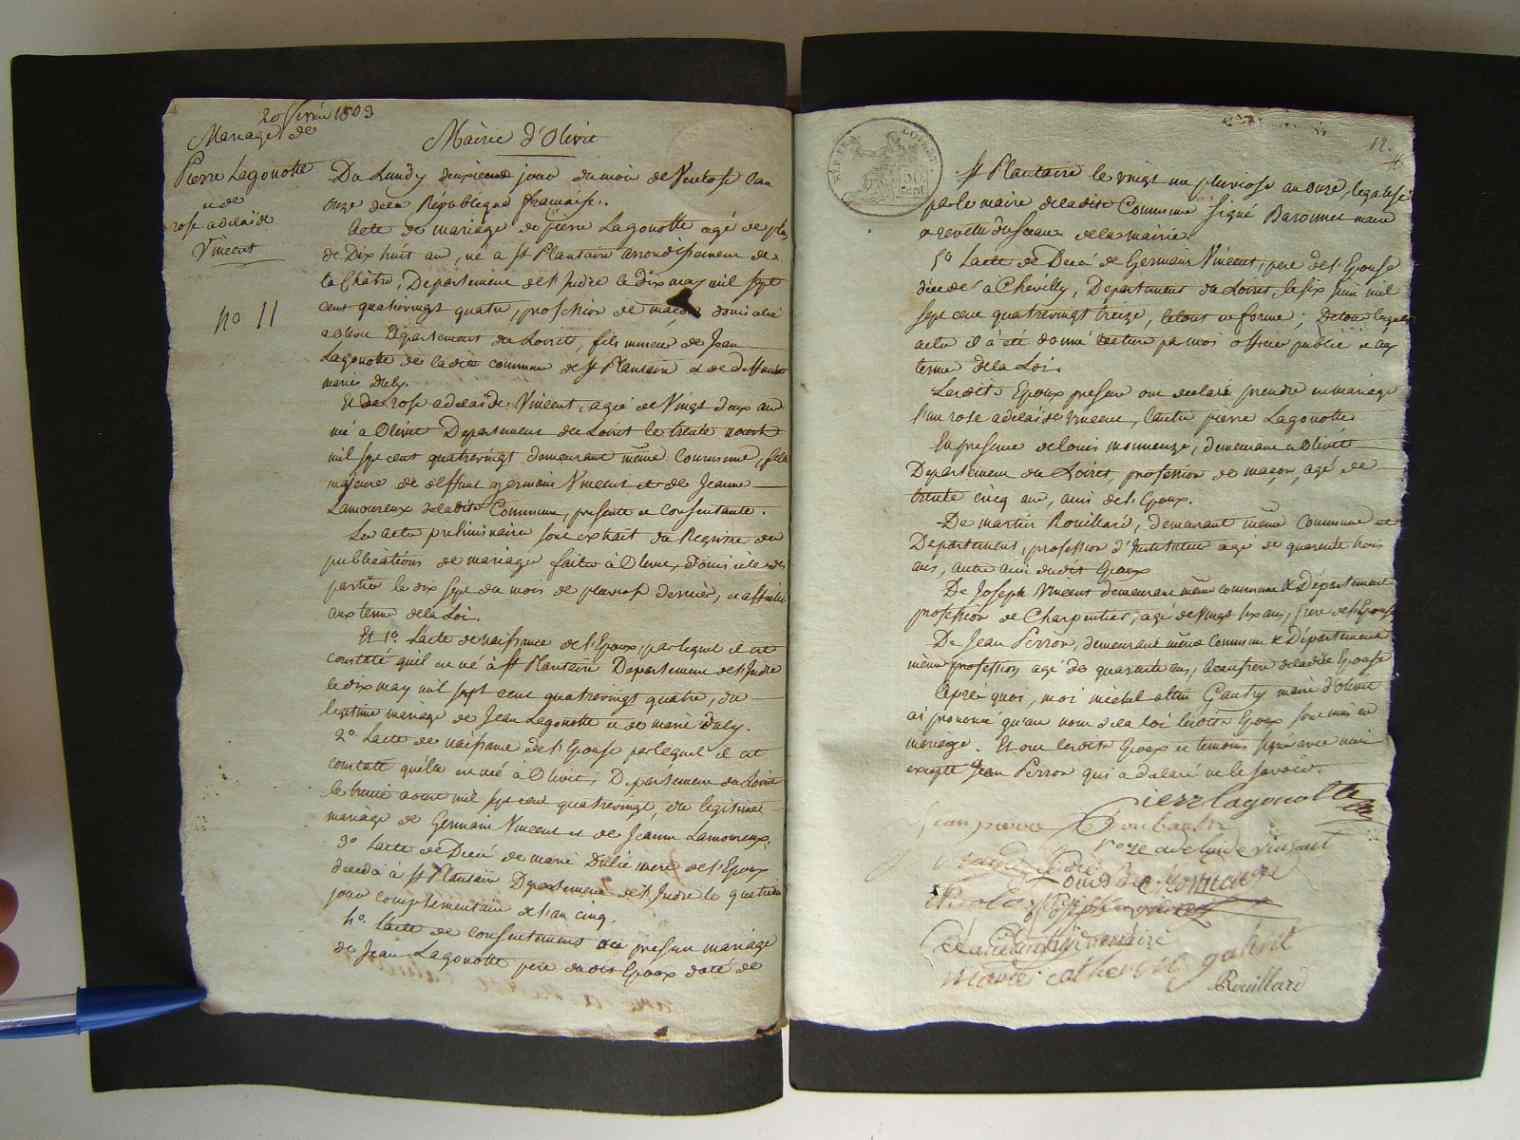 20 février 1803
Mariage de
Pierre Lagonotte
et de
rose adelaïde
Vincent
no 11
Mairie d'Olivet
Du Lundy deuxieme jour du mois de Ventose l'an
onze de la République française.
Acte de mariage de pierre Lagonotte agé de plus
de Dix huit ans, né à St Plantaire arrondissement de
la Châtre, Departement de l'Indre le dix may mil sept
cent quatrevingt quatre, profession de maçon domicilié
a olivet Département du Loiret, fils mineur de Jean
Lagonotte de ladite commune de St Plantaire et de deffunte
marie Duly.
Et de rose adelaïde Vincent, agée de Vingt deux ans
née à Olivet Departement du Loiret le trente aoust
mil sept cent quatrevingt demeurant même Commune, fille
majeure de deffunt germain Vincent et de Jeanne
Lamoureux de ladite Commune, presente et consentante.
Les actes preliminaires sont extrait du Registre des
publications de mariage faites à Olivet, domicile des
parties le dix sept du mois de pluviose dernier, et affichés
aux termes de la Loi.
Et 1º. Lacte de naissance de l'Epoux, par lequel il est
constaté qu'il est né à St Plantaire Departement de l'Indre
le dix may mil sept cent quatrevingt quatre, du
legitime mariage de Jean Lagonotte et de marie Duly.
2º Lacte de naissance de l'Epouse par lequel il est
constaté qu'elle est née à Olivet, Département du Loiret
le trente aoust mil sept cent quatrevingt, du legitime
mariage de Germain Vincent et de Jeanne Lamoureux.
3º Lacte de Décé de marie Dulie mere de l'Epoux
decedée à St Plantaire Departement de l'Indre le quatrieme
jour complémentaire de l'an cinq.
4º. Lacte de consentement au present mariage
de Jean Lagonotte pere dudit Epoux daté de
12.
St Plantaire le vingt un pluviose an onze, legalisé
par le maire de ladite Commune signé Baronnet maire
et revetu du sceau de la mairie.
5º Lacte de Décé de Germain Vincent, pere de l'Epouse
décedé à Chévilly, Departement du Loiret, le six juin mil
sept cent quatrevingt treize, le tout en forme; De tous lesquels
actes il a été donné lecture par moi officier public et aux
termes de la Loi.
Lesdits Epoux present ont declaré prendre en mariage
l'une rose adelaïde Vincent, l'autre pierre Lagonotte
En presence de louis monmerge, demeurant a Olivet
Departement du Loiret, profession de maçon, agé de
trente cinq ans, ami de l'Epoux.
De martin Rouillard, demeurant même Commune et
Departement, profession d'Instituteur agé de quarente trois
ans, autre ami dudit Epoux
De Joseph Vincent demeurant même commune & département
profession de Charpentier, agé de vingt six ans, frere de l'Epouse
De Jean Perron, demeurant même Commune & Département
même profession agé de quarente ans, beaufrere de ladite Epouse
Après quoi, moi michel Gaudry maire d'olivet
ai prononcé qu'au nom de la loi lesdits Epoux sont unis en
mariage. Et ont lesdits Epoux et temoins signé avec moi
excepté Jean Perron qui a declaré ne le savoir.
Pierr lagonotte
jean pierre
roze adelayde vinsant
Louis
marie catherine
Rouillard